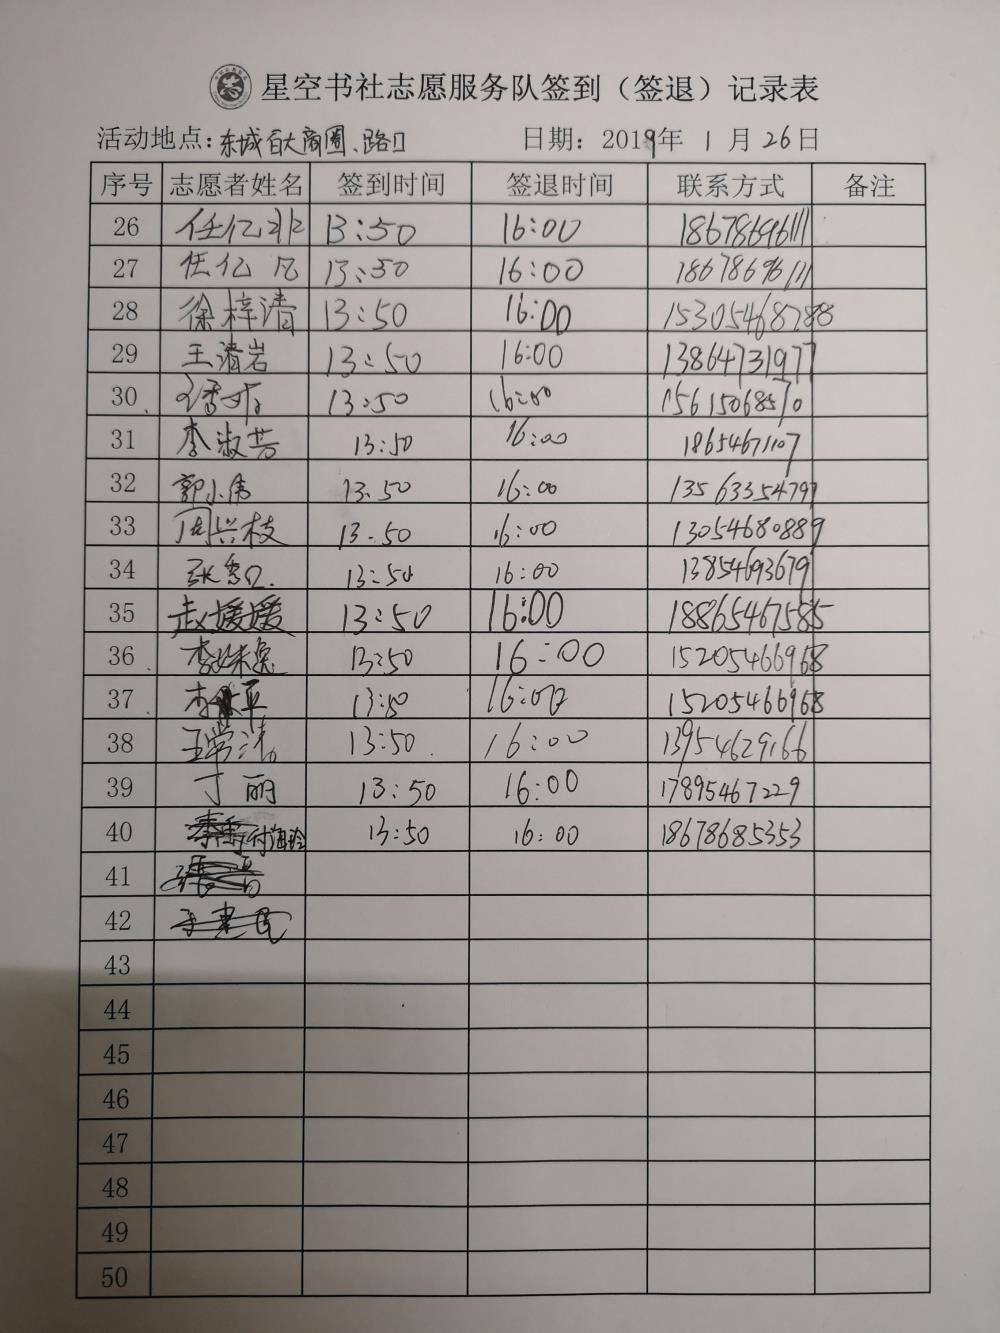 星空书社志愿服务队签到（签退）记录表
活动地点：东城百大商圈、路口 日期：2019年 1 月 26 日
序号 志愿者姓名 签到时间 签退时间 联系方式 备注
26 任亿非 13:50 16:00 18678696111
27 任亿凡 13:50 16:00 18678696111
28 徐梓清 13:50 16:00 15305468788
29 王清岩 13:50 16:00 13864731977
30 13:50 16:00 15615068570
31 李淑芸 13:50 16:00 18654671107
32 郭小伟 13.50 16:00 13563354797
33 周兴枝 13.50 16:00 13054680889
34 13:50 16:00 13854693679
35 赵媛媛 13:50 16:00 18865467585
36 13:50 16:00 15205466968
37 16:00 15205466968
38 13:50 16:00 13954629166
39 丁丽 13:50 16:00 17895467229
40 付海玲 13:50 16:00 18678685353
41
42
43
44
45
46
47
48
49
50